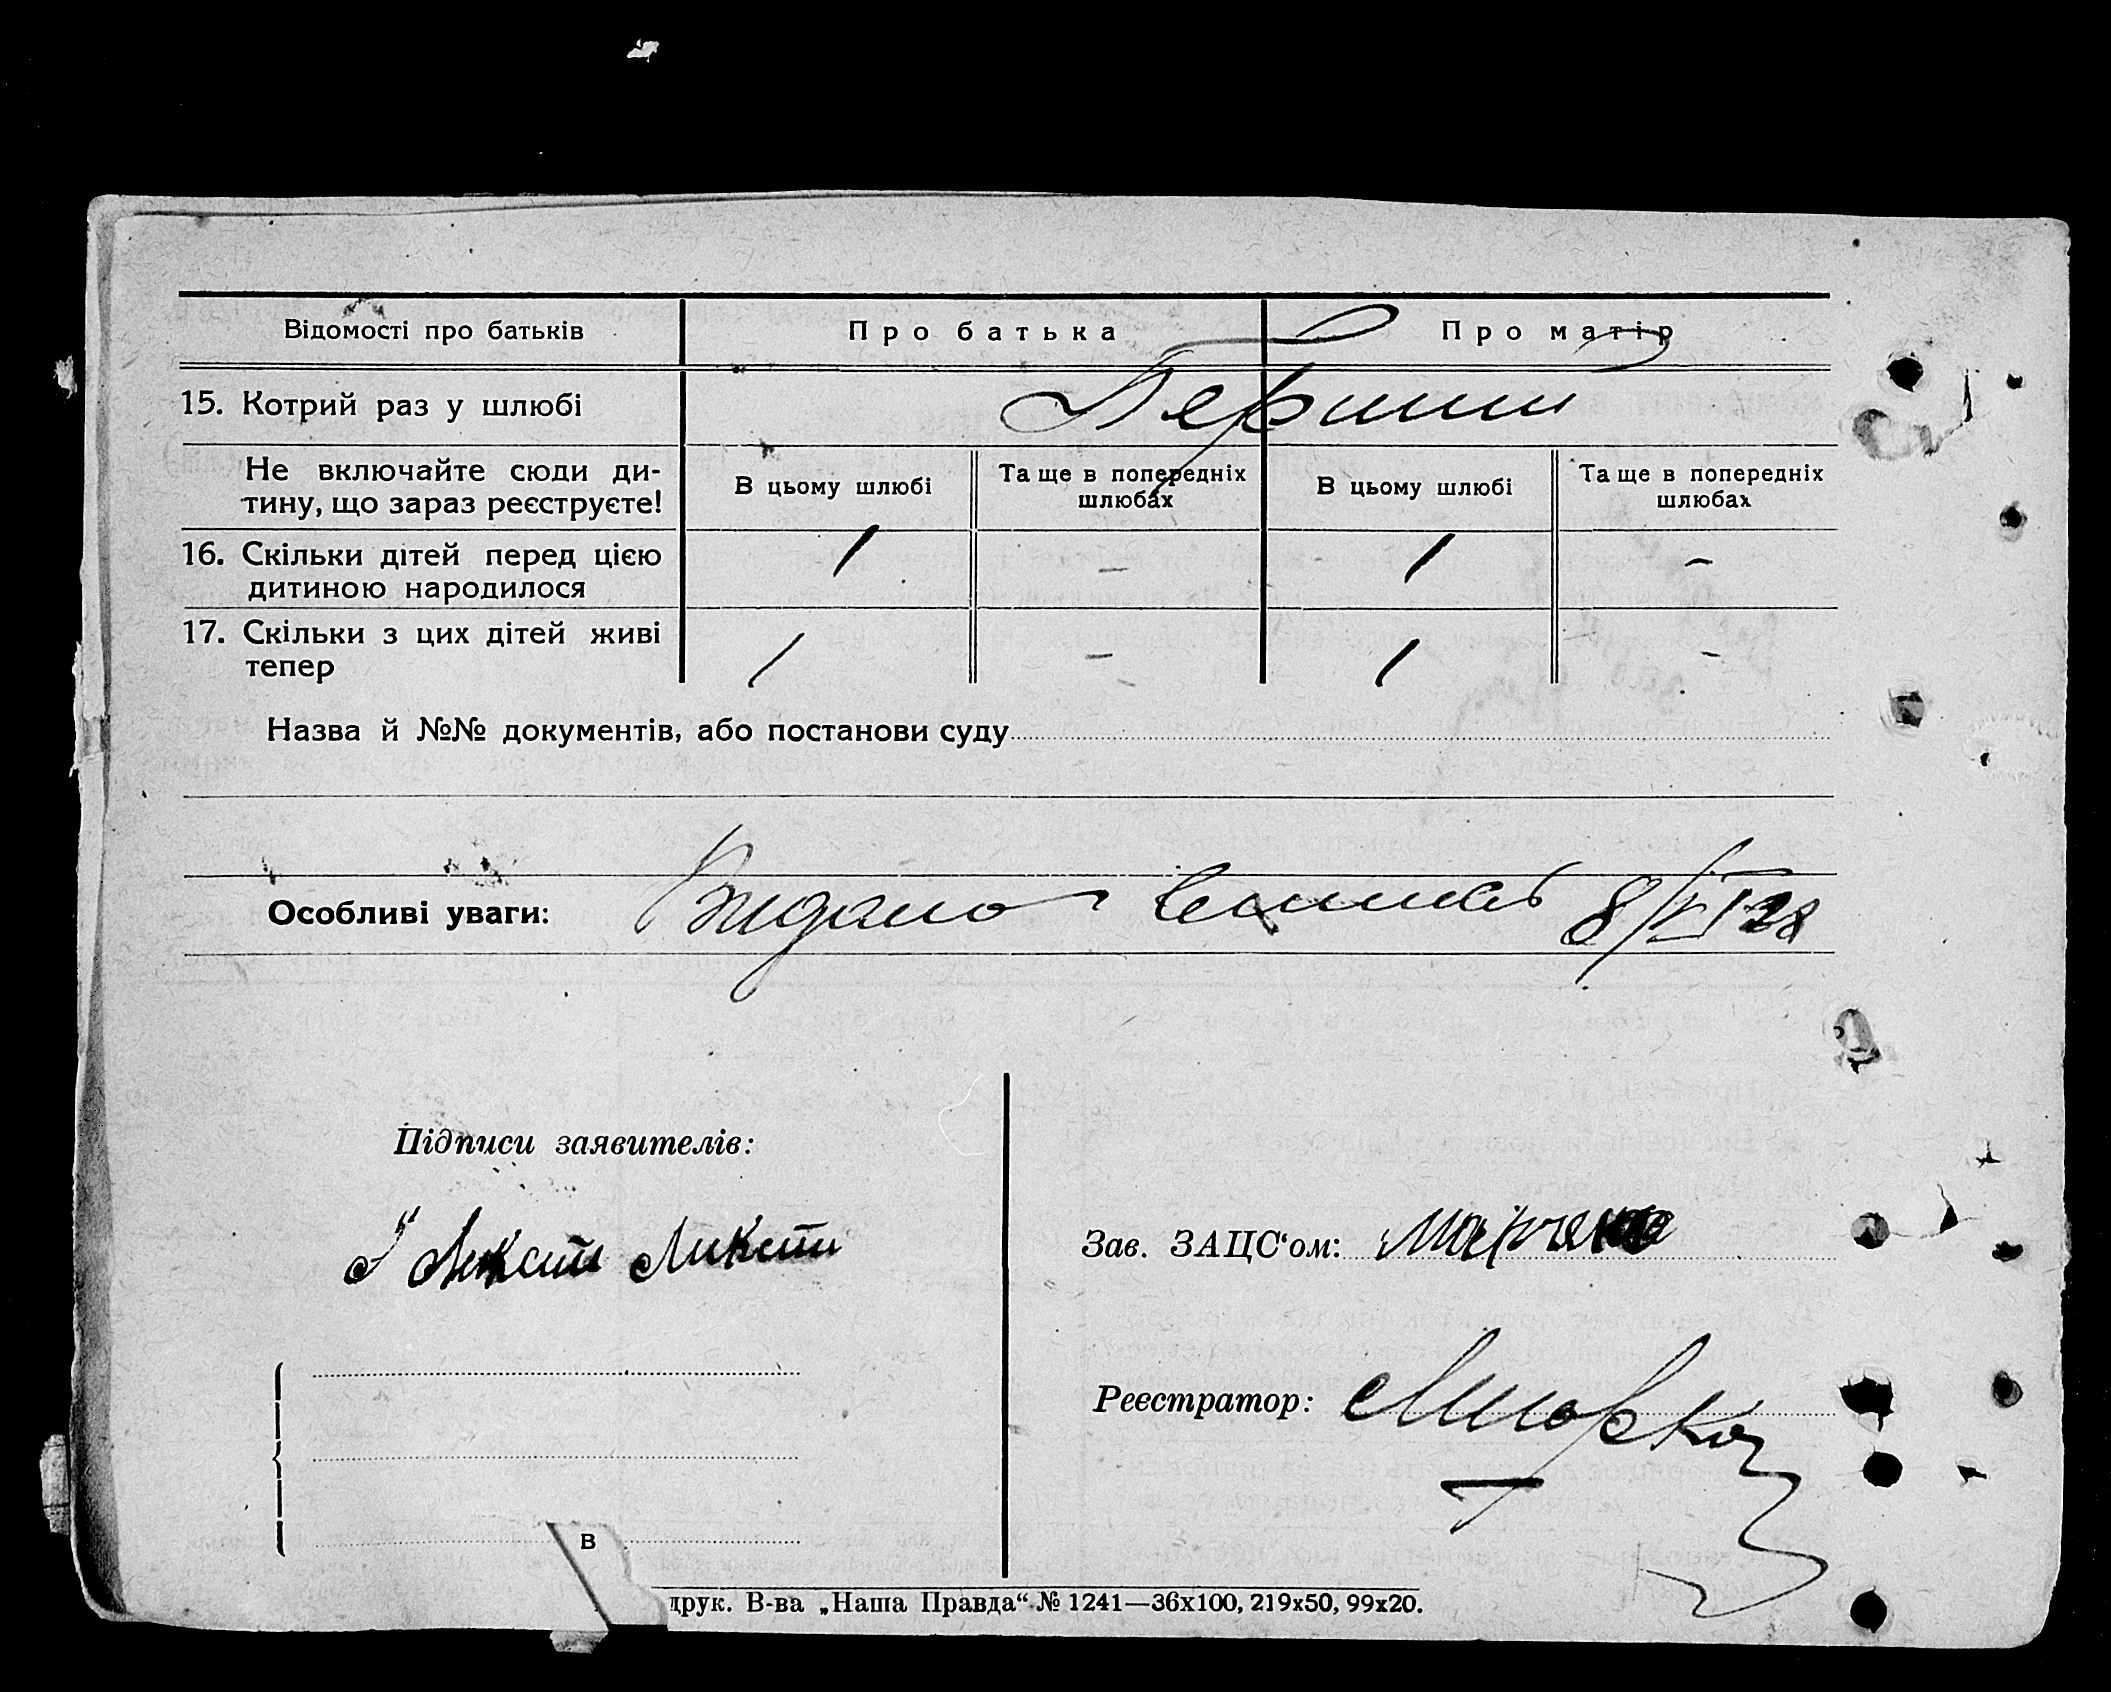 Відомості про батьків
Про батька
Про матір
15. Котрий раз у шлюбі
Перший
Не включайте сюди ди-
тину, що зараз реєструєте!
В цьому шлюбі
Та ще в попередніх
шлюбах
В цьому шлюбі
Та ще в попередніх
шлюбах
16. Скільки дітей перед цією
дитиною народилося
1
-
1
-
17. Скільки з цих дітей живі
тепер
1
-
1
-
Назва й №№ документів, або постанови суду
Особливі уваги: Видано 8/VI 28
Підписи заявителів:
Зав. ЗАЦС‘ом:
Реєстратор:
в
друк. В-ва „Наша Правда“ № 1241—36х100, 219х50, 99х20.